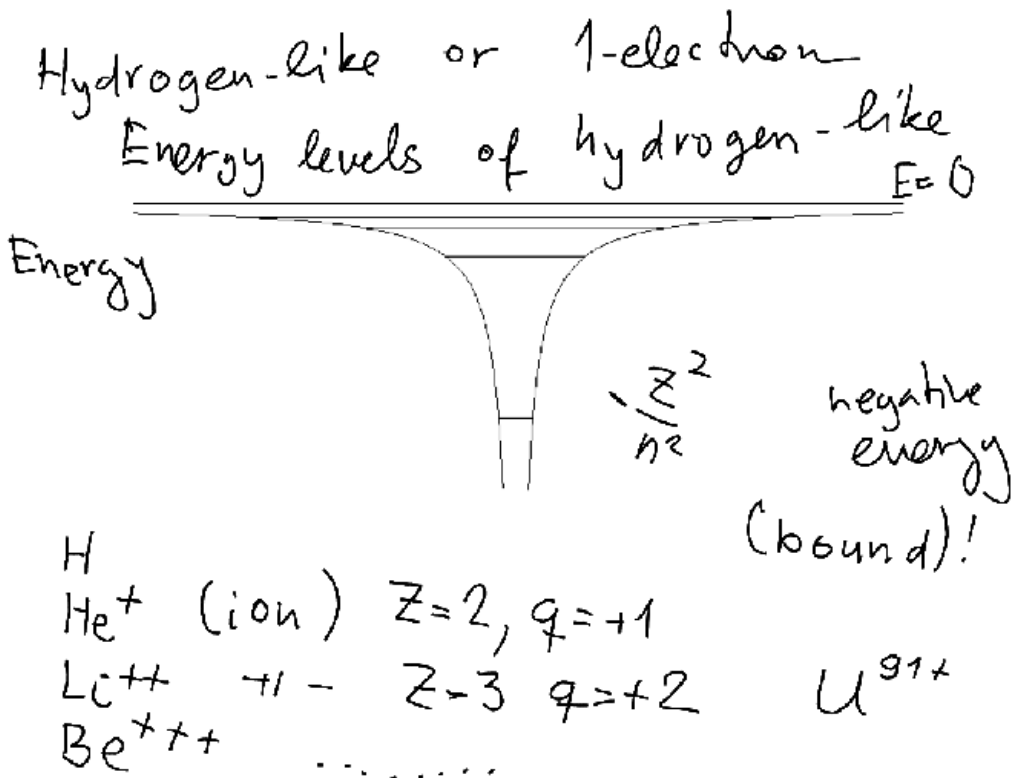 Hydrogen-like or 1-electron
Energy levels of hydrogen-like
E=0
Energy
-Z²/n²
negative
energy
(bound)!
H
He⁺ (ion) Z=2, q=+1
Li⁺⁺ -11- Z=3 q=+2 U⁹¹⁺
Be⁺⁺⁺ ........